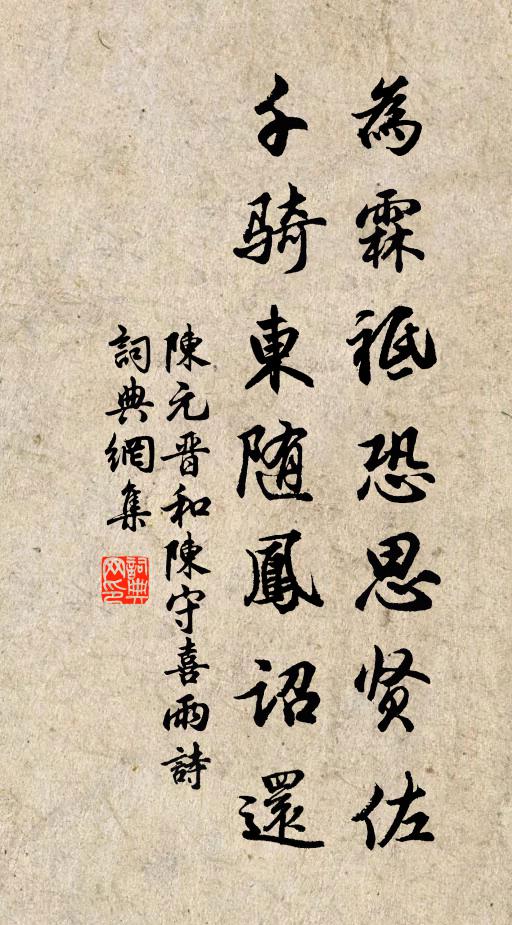 為霖祗恐思贤佐
千骑東随鳳诏還
陳元晋和陳守喜雨詩
詞典網集
詞典
网印